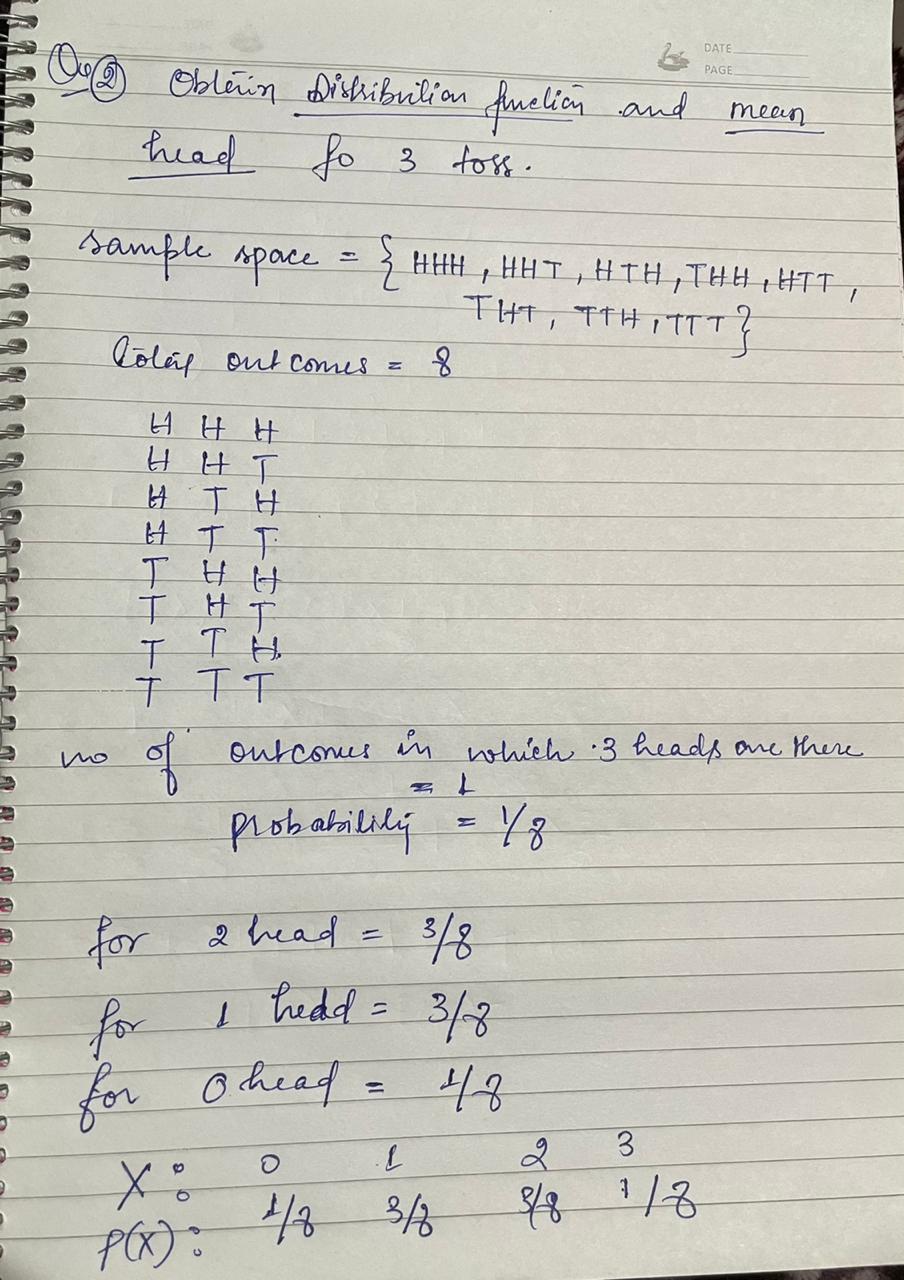 DATE
PAGE
Que ② Obtain Distribution function and mean
head fo 3 toss.
sample space = { HHH , HHT , HTH , THH , HTT ,
THT , TTH , TTT }
Total outcomes = 8
H H H
H H T
H T H
H T T
T H H
T H T
T T H
T T T
no of outcomes in which 3 heads are there
= 1
probability = 1/8
for 2 head = 3/8
for 1 head = 3/8
for 0 head = 1/8
X : 0 1 2 3
P(X) : 1/8 3/8 3/8 1/8